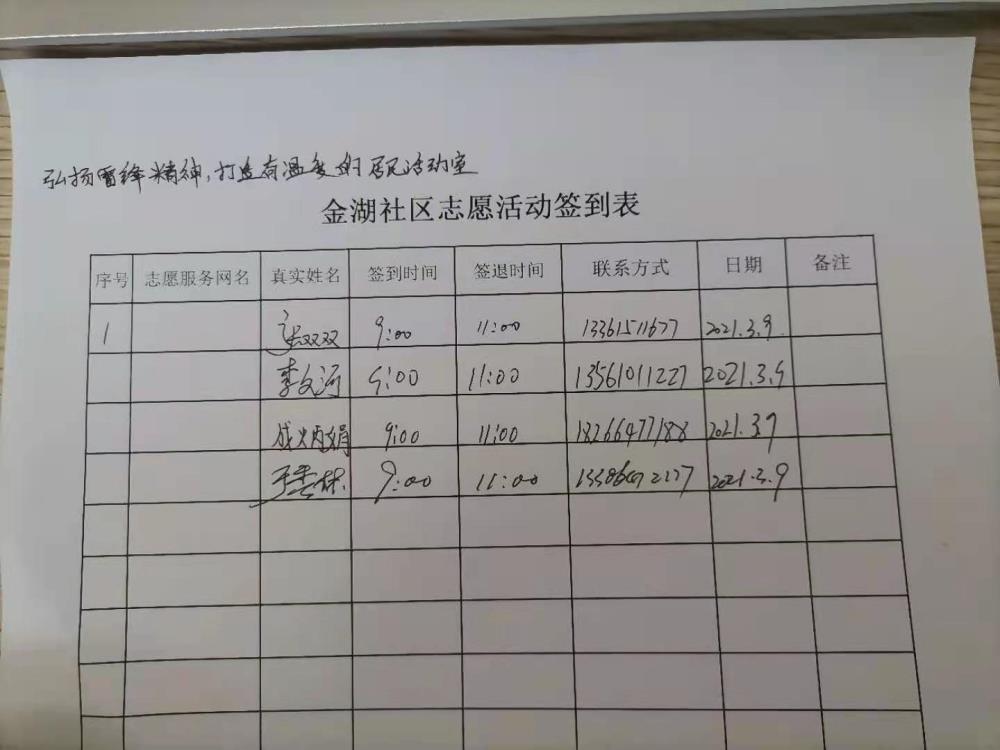 弘扬雷锋精神,打造有温度的居民活动室
金湖社区志愿活动签到表
序号 志愿服务网名 真实姓名 签到时间 签退时间 联系方式 日期 备注
1 双双 9:00 11:00 13361511677 2021.3.9
李文河 9:00 11:00 13561011227 2021.3.9
成炳娟 9:00 11:00 18266477188 2021.3.9
9:00 11:00 2021.3.9